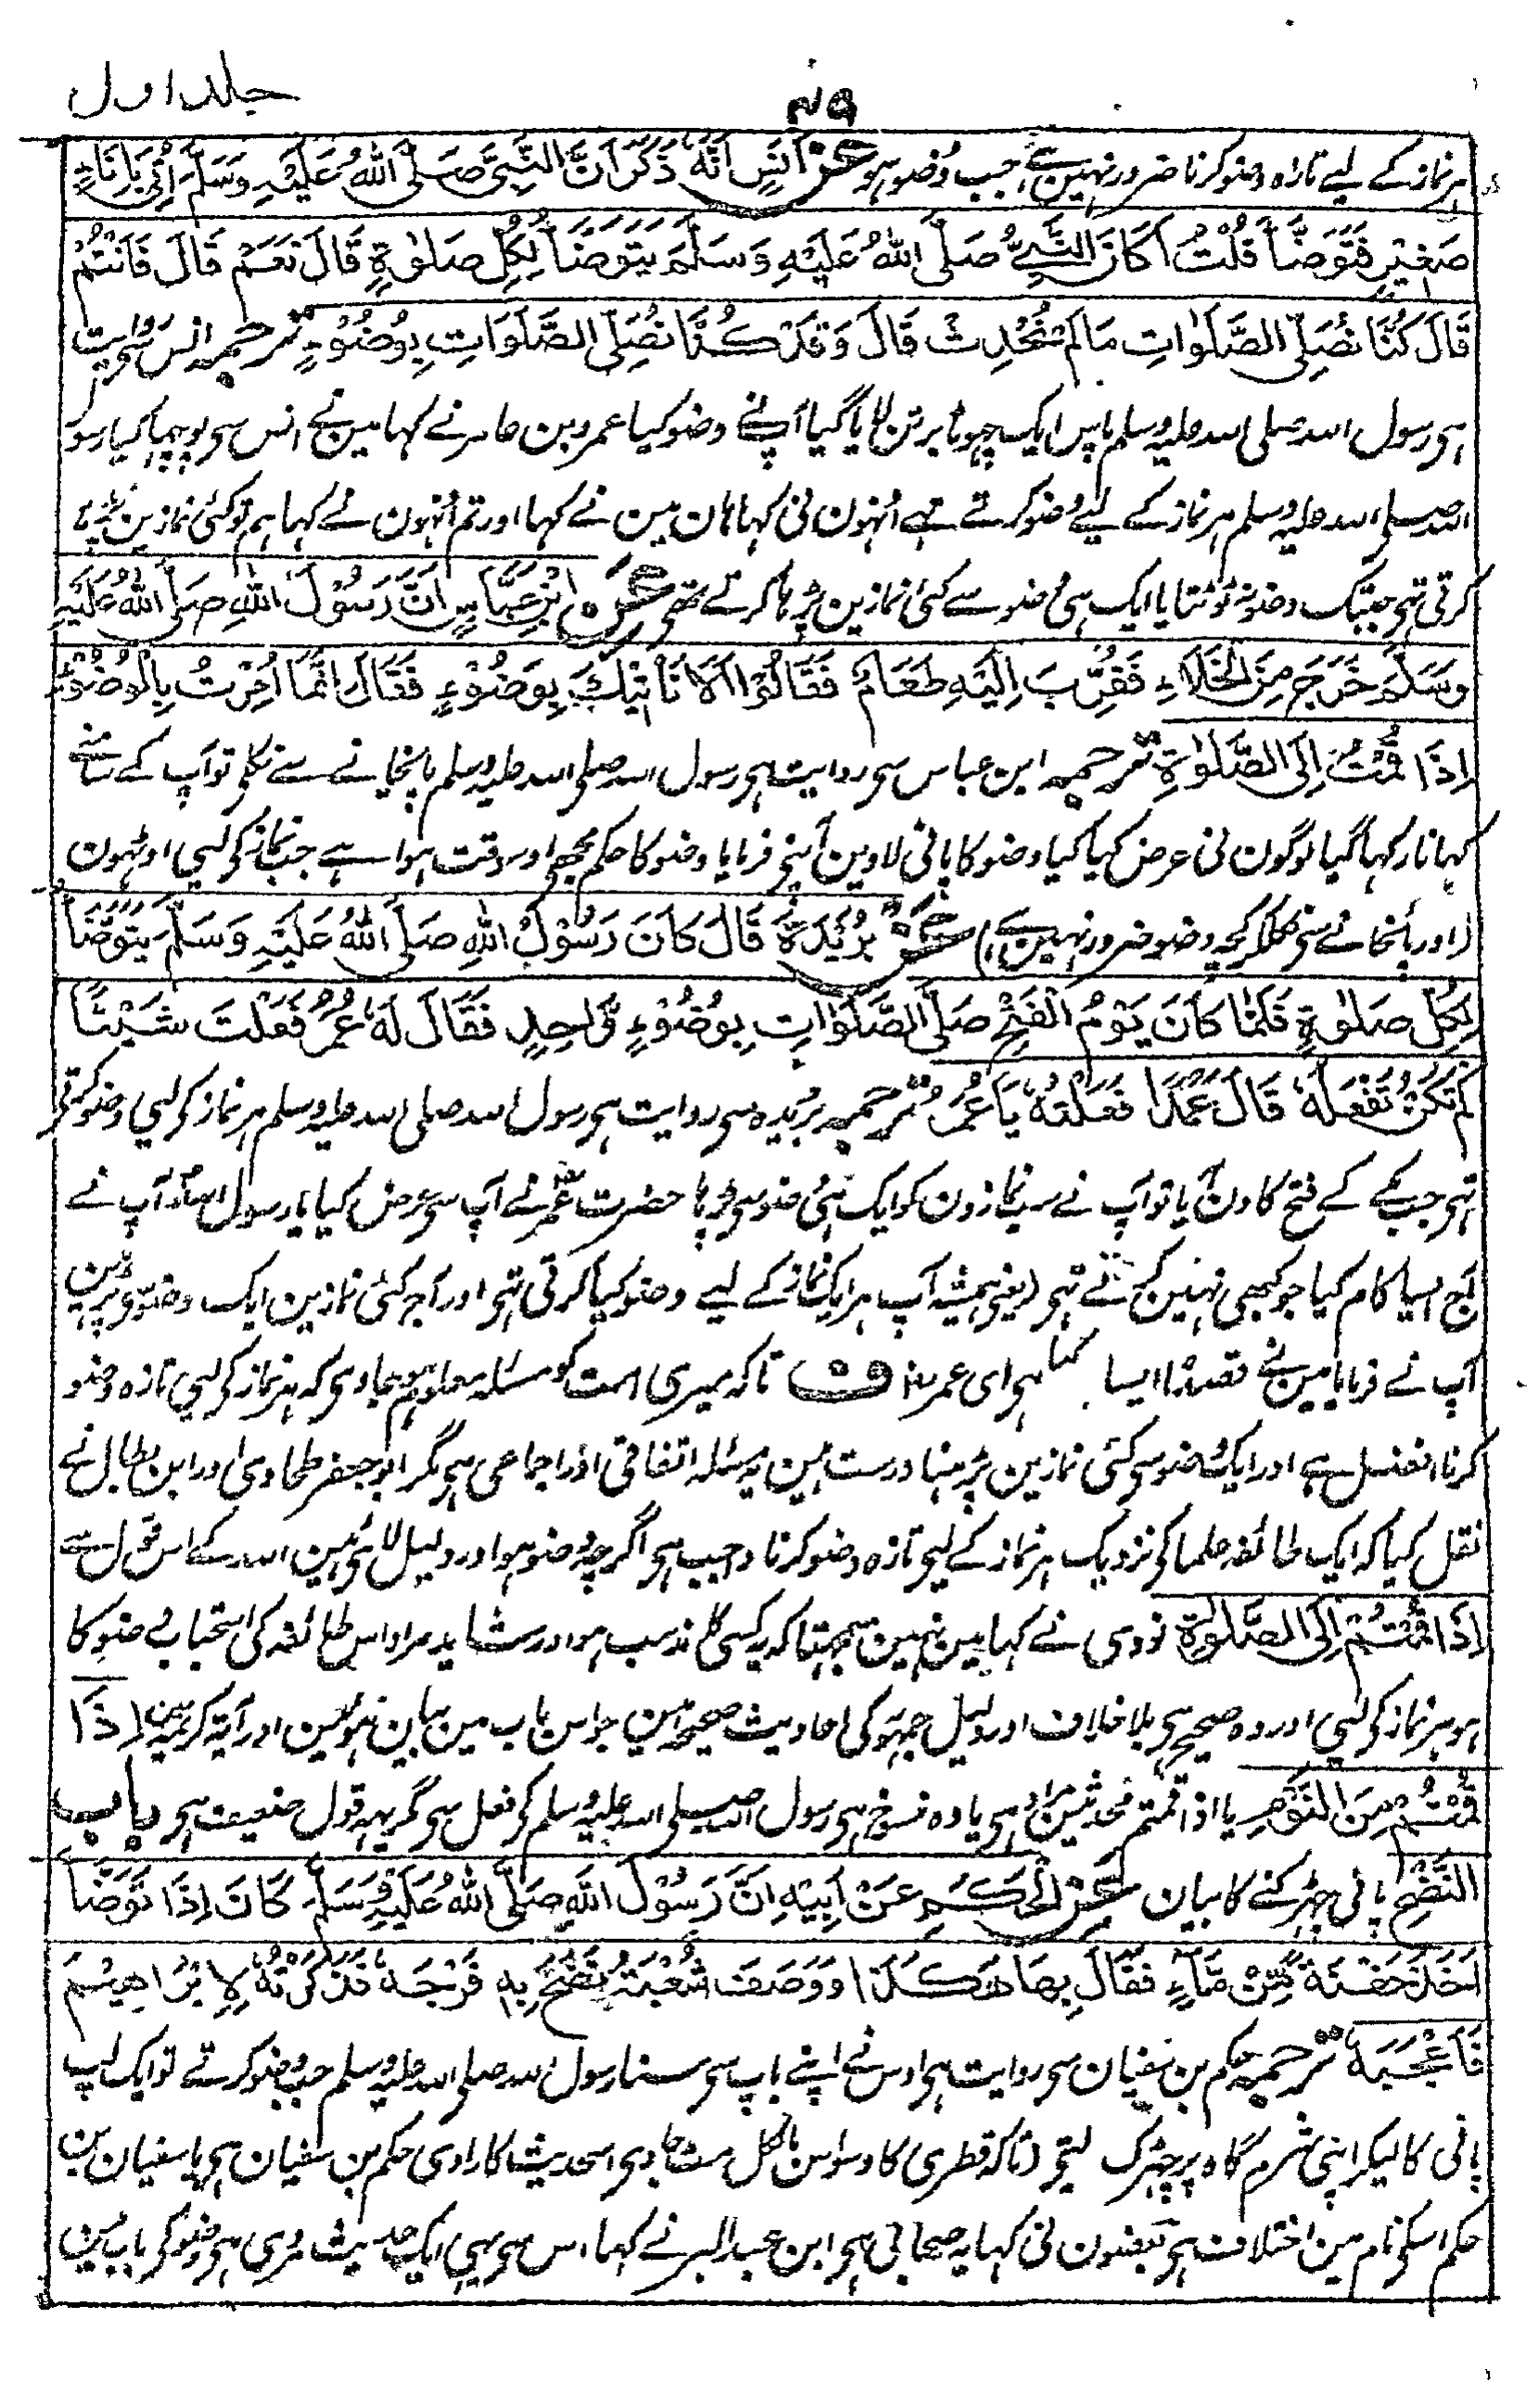 جلد اول
۴۹
ہر نماز کے لیے تازہ وضو کرنا ضرور نہین ہے جب وضو ہو عَنْ اَنَسٍ اَنَّهٗ ذَكَرَ اَنَّ النَّبِیَّ صَلَّی اللّٰهُ عَلَیْهِ وَسَلَّمَ اُتِیَ بِاِنَاءٍ
صَغِیْرٍ فَتَوَضَّاَ قُلْتُ اَكَانَ النَّبِیُّ صَلَّی اللّٰهُ عَلَیْهِ وَسَلَّمَ یَتَوَضَّاُ لِكُلِّ صَلٰوةٍ قَالَ نَعَمْ قَالَ فَاَنْتُمْ
قَالَ كُنَّا نُصَلِّی الصَّلَوٰاتِ مَا لَمْ نُحْدِثْ قَالَ وَقَدْ كُنَّا نُصَلِّی الصَّلَوَاتِ بِوُضُوْءٍ ترجمہ انس سی روایت
ہی رسول اللہ صلی اللہ علیہ وسلم پاس ایک چہوٹا برتن لایا گیا آپنے وضو کیا عمرو بن عامر نے کہا مین نے انس سی پوچہا کیا رسو
اللہ صلی اللہ علیہ وسلم ہر نماز کے لیے وضو کرتے تہے انہون نی کہا ہان مین نے کہا اور تم انہون نے کہا ہم تو کئی نمازین پڑہا
کرتی تہی جبتک وضو نہ ٹوٹتا یا ایک ہی وضو سے کئی نمازین پڑہا کرتے تھے عَنِ ابْنِ عَبَّاسٍ اَنَّ رَسُوْلَ اللّٰهِ صَلَّی اللّٰهُ عَلَیْهِ
وَسَلَّمَ خَرَجَ مِنَ الْخَلَاءِ فَقُرِّبَ اِلَیْهِ طَعَامٌ فَقَالُوْا اَلَا نَاْتِیْكَ بِوَضُوْءٍ فَقَالَ اِنَّمَا اُمِرْتُ بِالْوُضُوْءِ
اِذَا قُمْتُ اِلَی الصَّلٰوةِ ترجمہ ابن عباس سی روایت ہی رسول اللہ صلی اللہ علیہ وسلم پائخانے سے نکلی تو آپ کے سامنے
کہانا رکہا گیا لوگون نی عرض کیا کیا وضو کا پانی لاوین آپنی فرمایا وضو کا حکم مجہی اوسوقت ہوا ہے جب نماز کو لیی اوٹہون
(اور پائخانے سی نکلکر کچہ وضو ضرور نہین ہے) عَنْ بُرَیْدَةَ قَالَ كَانَ رَسُوْلُ اللّٰهِ صَلَّی اللّٰهُ عَلَیْهِ وَسَلَّمَ یَتَوَضَّاُ
لِكُلِّ صَلٰوةٍ فَلَمَّا كَانَ یَوْمُ الْفَتْحِ صَلَّی الصَّلَوَاتِ بِوُضُوْءٍ وَّاحِدٍ فَقَالَ لَهٗ عُمَرُ فَعَلْتَ شَیْئًا
لَمْ تَكُنْ تَفْعَلُهٗ قَالَ عَمْدًا فَعَلْتُهٗ یَا عُمَرُ ترجمہ بریدہ سی روایت ہی رسول اللہ صلی اللہ علیہ وسلم ہر نماز کو لیی وضو کرتی
تہی جب مکے کے فتح کا دن آیا تو آپ نے سب نمازون کو ایک ہی وضو سی پڑہا حضرت عمر نے آپ سی عرض کیا یا رسول اللہ آپ نے
آج ایسا کام کیا جو کبہی نہین کرتے تہی (یعنی ہمیشہ آپ ہر ایک نماز کے لیے وضو کیا کرتی تہی اور آج کئی نمازین ایک وضو سی پڑہین
آپ نے فرمایا مین نے قصدًا ایسا کیا ہی ای عمر ف تاکہ میری امت کو مسئلہ معلوم ہو جاوی کہ ہر نماز کو لیی تازہ وضو
کرنا افضل ہے اور ایک وضو سی کئی نمازین پڑہنا درست ہین یہ مسئلہ اتفاقی اور اجماعی ہی مگر ابو جعفر طحاوی اور ابن بطال نے
نقل کیا کہ ایک طائفہ علما کو نزدیک ہر نماز کے لیی تازہ وضو کرنا واجب ہی اگرچہ وضو ہو اور دلیل لائی ہین اللہ کے اس قول سے
اِذَا قُمْتُمْ اِلَی الصَّلٰوةِ نووی نے کہا مین نہین سمجہتا کہ یہ کسی کا مذہب ہو اور شاید مراد اس طائفہ کی استحباب وضو کا
ہو ہر نماز کو لیی اور وہ صحیح ہی بلا خلاف اور دلیل جمہور کی احادیث صحیحہ ہین جو اس باب مین بیان ہوئین اور آیۃ کریمہ مین اِذَا
قُمْتُمْ مِنَ النَّوْمِ یا اذا قمتم محدثین مراد ہی یا وہ منسوخ ہی رسول اللہ صلی اللہ علیہ وسلم کو فعل سی مگر یہہ قول ضعیف ہی باب
النَّضْحِ پانی چہڑکنے کا بیان عَنِ الْحَكَمِ عَنْ اَبِیْهِ اَنَّ رَسُوْلَ اللّٰهِ صَلَّی اللّٰهُ عَلَیْهِ وَسَلَّمَ كَانَ اِذَا تَوَضَّاَ
اَخَذَ حَفْنَةً مِّنْ مَّاءٍ فَقَالَ بِهَا هٰكَذَا وَوَصَفَ شُعْبَةُ نَضَحَ بِهٖ فَرْجَهٗ فَذَكَرْتُهٗ لِاِبْرَاهِیْمَ
فَاَعْجَبَهٗ ترجمہ حکم بن سفیان سی روایت ہی اوس نے اپنے باپ سی سنا رسول اللہ صلی اللہ علیہ وسلم جب وضو کرتے تو ایک لپ
پانی کا لیکر اپنی شرم گاہ پر چہڑک لیتی (تاکہ قطری کا وسواس بالکل مٹ جاوی اس حدیث کا راوی حکم بن سفیان ہی یا سفیان بن
حکم اسکی نام مین اختلاف ہی بعضون نی کہا یہ صحابی ہی ابن عبد البر نے کہا اس سی یہی ایک حدیث مروی ہی وضو کی باب مین